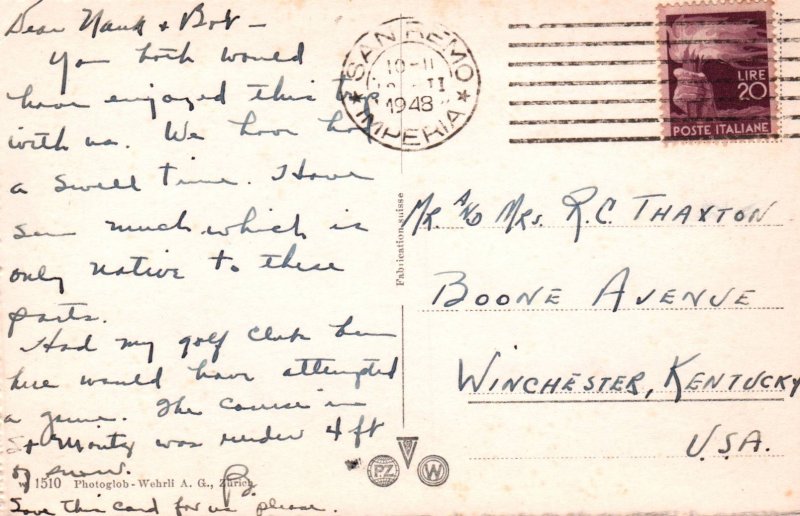 Dear Nank + Bob -
You both would
have enjoyed this trip
with us. We have had
a swell time. Have
seen much which is
only native to these
parts.
Had my golf clubs been
here would have attempted
a game. The course in
St Moritz was under 4 ft
of snow.
P.
1510 Photoglob-Wehrli A. G., Zürich.
Save this card for us please.
Fabrication suisse
SAN REMO
10-11
II
1948
IMPERIA
LIRE
20
POSTE ITALIANE
MR. AND MRS. R.C. THAXTON
BOONE AVENUE
WINCHESTER, KENTUCKY
U.S.A.
P.Z.
W